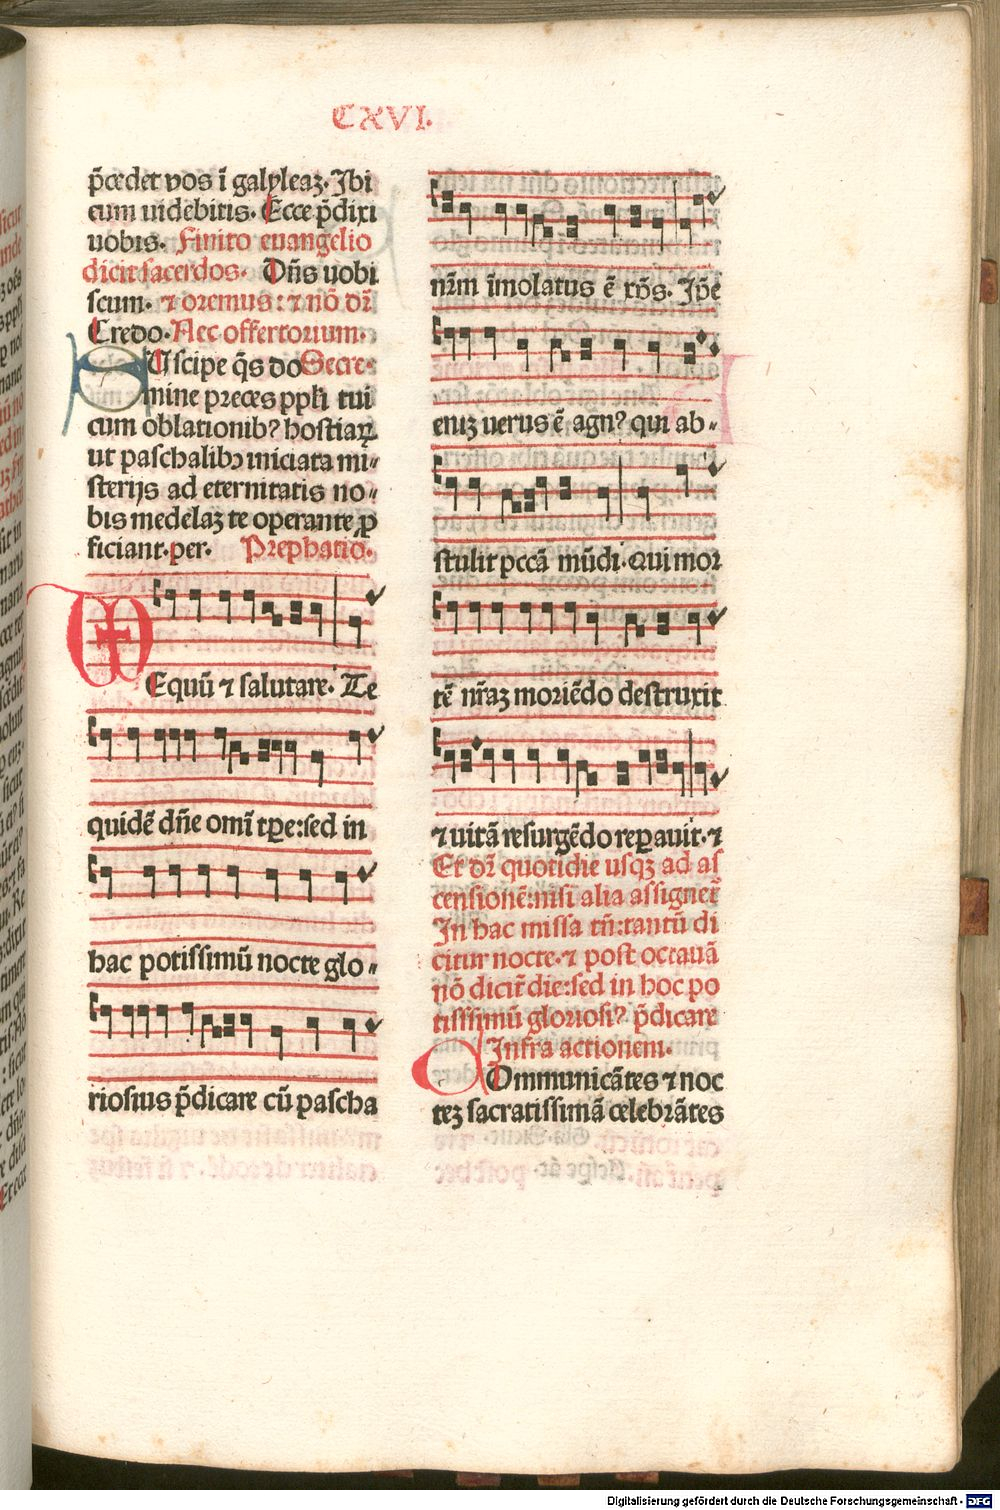 CXVI.
p̄cedet vos ī galyleaꝫ. Ibi
eum uidebitis. Ecce p̄dixi
uobis. Finito euangelio
dicit sacerdos. Dn̄s uobi
scum. ⁊ oremus: ⁊ nō dr̄
Credo. Nec offertorium.
SUscipe q̄s do Secre-
mine preces ppl̄i tui
cum oblationibꝰ hostiaꝝ
ut paschalibꝫ iniciata mi-
sterijs ad eternitatis no-
bis medelaꝫ te operante ꝓ
ficiant. per. Prephatio.
Equū ⁊ salutare. Te
quidē dn̄e omī tꝑe: sed in
hac potissimū nocte glo-
riosius p̄dicare cū pascha
nr̄m īmolatus ē xp̄s. Ip̄e
eniꝫ uerus ē agnꝰ qui ab-
stulit pccā mūdi. Qui mor
tē nr̄aꝫ moriēdo destruxit
⁊ uitā resurgēdo reꝑauit. ⁊
Et dr̄ quotidie usqꝫ ad as
censionē: nisi alia assignet᷑
In hac missa tn̄: tantū di
citur nocte. ⁊ post octauā
nō dicit᷑ die: sed in hoc po
tissimū gloriosiꝰ p̄dicare
Infra actionem.
COmmunicātes ⁊ noc
teꝫ sacratissimā celebrātes
Digitalisierung gefördert durch die Deutsche Forschungsgemeinschaft - DFG